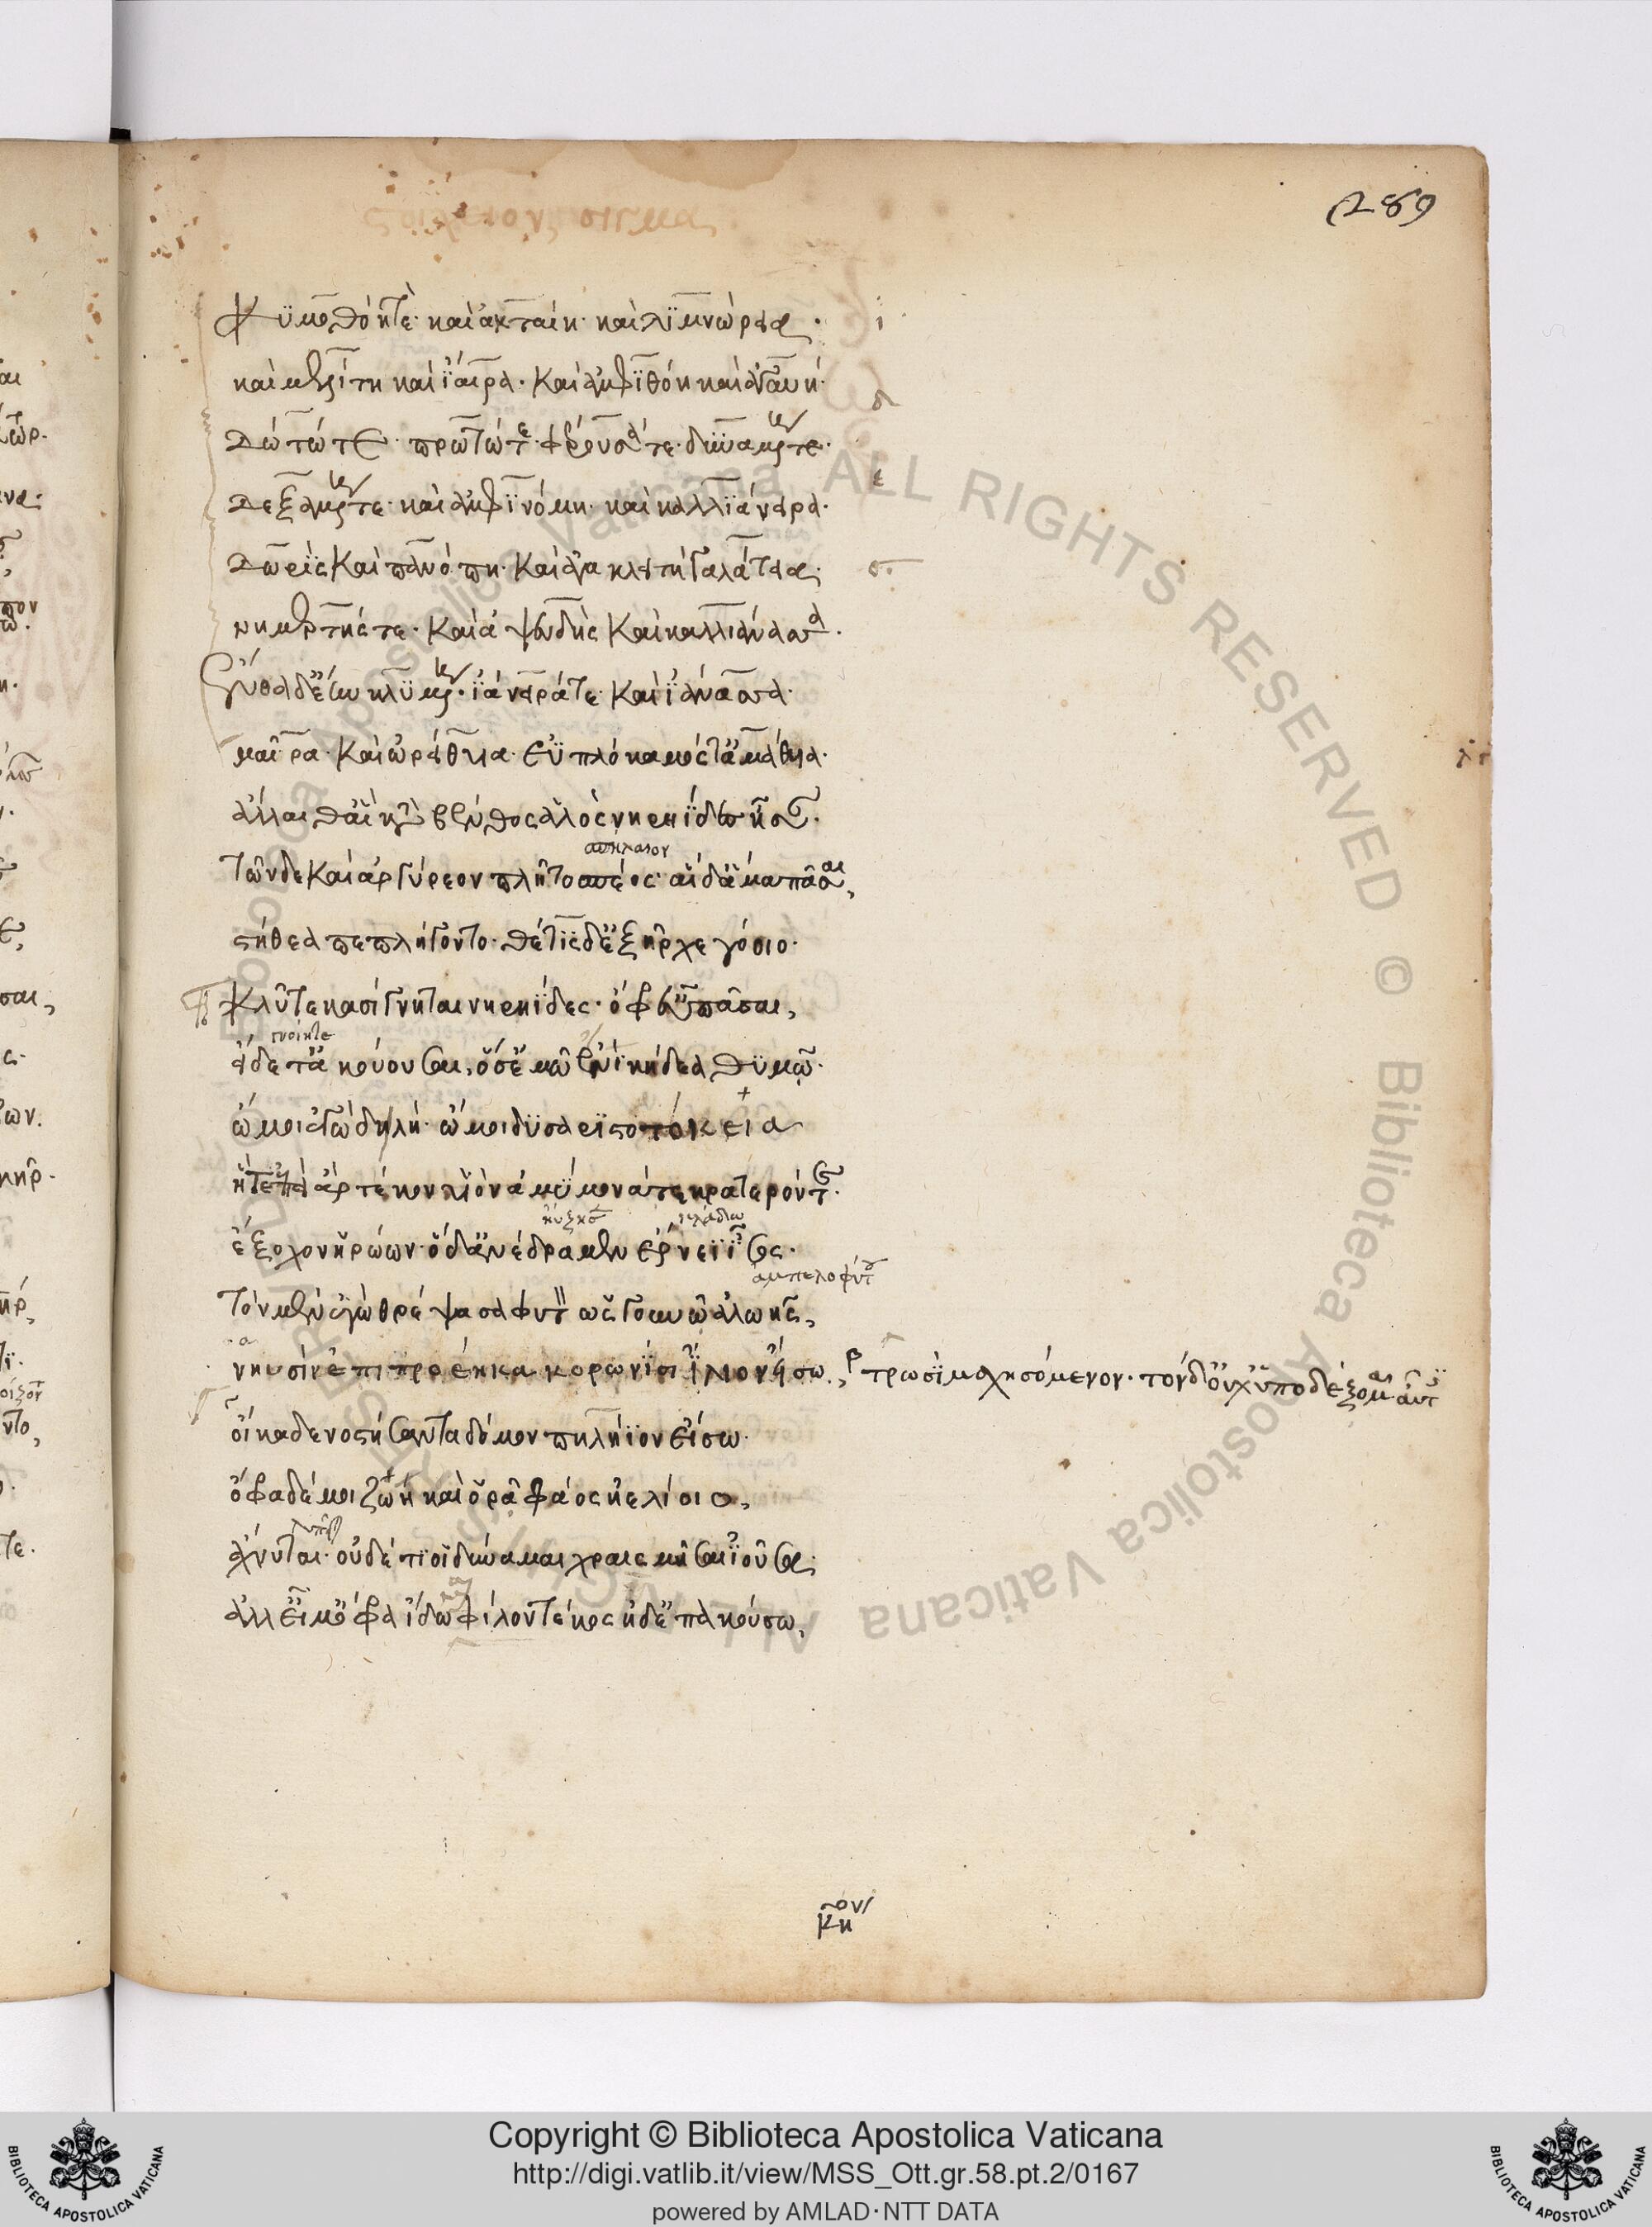 289
κυμοθόη τὲ· καὶ ἀκταίη· καὶ λϊμνώρεια·
καὶ μελίτη καὶ ἴαιρα· καὶ ἀμφιθόη καὶ ἀγαυή·
δωτώ τε· πρωτώ τε· φέρουσά τε· δυναμένη τε·
δεξαμένη τε· καὶ ἀμφϊνόμη· καὶ καλλϊάνειρα·
δωρὶς καὶ πανόπη· καὶ ἀγακλειτὴ γαλάτεια·
νημερτής τε· καὶ ἀψευδὴς καὶ καλλιάνασσα·
ἔνθα δ' ἔην κλυμένη· ἰάνειρά τε· καὶ ἰάνασσα·
μαῖρα· καὶ ὠρείθυια· ἐϋπλόκαμός τ' ἀμάθεια·
ἄλλαι θ' αἳ κατὰ βένθος ἁλὸς νηρηΐδες ἦσαν·
σπήλαιον
τῶν δε καὶ ἀργύρεον πλῆτο σπέος· αἱ δ' ἅμα πᾶσαι,
στήθεα πεπλήγοντο· θέτις δ' ἐξῆρχε γόοιο·
κλῦτε κασίγνηται νηρηΐδες· ὄφρ' εὖ πᾶσαι,
εἴδετ' ἀκούουσαι, ὅσ' ἐμῷ ἔνι κήδεα θυμῷ·
ὤ μοι ἐγὼ δηλή· ὤ μοι δυσαριστοτόκεια
ἥτ' ἐπεὶ ἂρ τέκον υἱὸν ἀμύμονά τε κρατερόν τε·
ἔξοχον ἡρώων· ὁ δ' ἀνέδραμεν ἔρνεϊ ἶσος·
τὸν μὲν ἐγὼ θρέψασα φυτὸν ὣς γουνῷ ἀλωῆς,
νηυσὶν ἐπιπροέηκα κορωνίσι ἴλιον εἴσω, τρωσὶ μαχησόμενον· τὸν δ' οὐχ ὑποδέξομαι αὖτις
οἴκαδε νοστήσαντα δόμον πηλήϊον εἴσω·
ὄφρα δέ μοι ζώη καὶ ὁρᾷ φάος ἠελίοιο,
ἄχνυται· οὐδέ τι οἱ δύναμαι χραισμῆσαι ἰοῦσα·
ἀλλ' εἶμ' ὄφρα ἴδωμι φίλον τέκος ἠδ' ἐπακούσω,